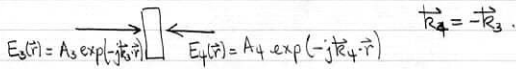 k⃗₄ = -k⃗₃ .
E₃(r⃗) = A₃ exp(-jk⃗₃·r⃗) E₄(r⃗) = A₄ exp(-jk⃗₄·r⃗)